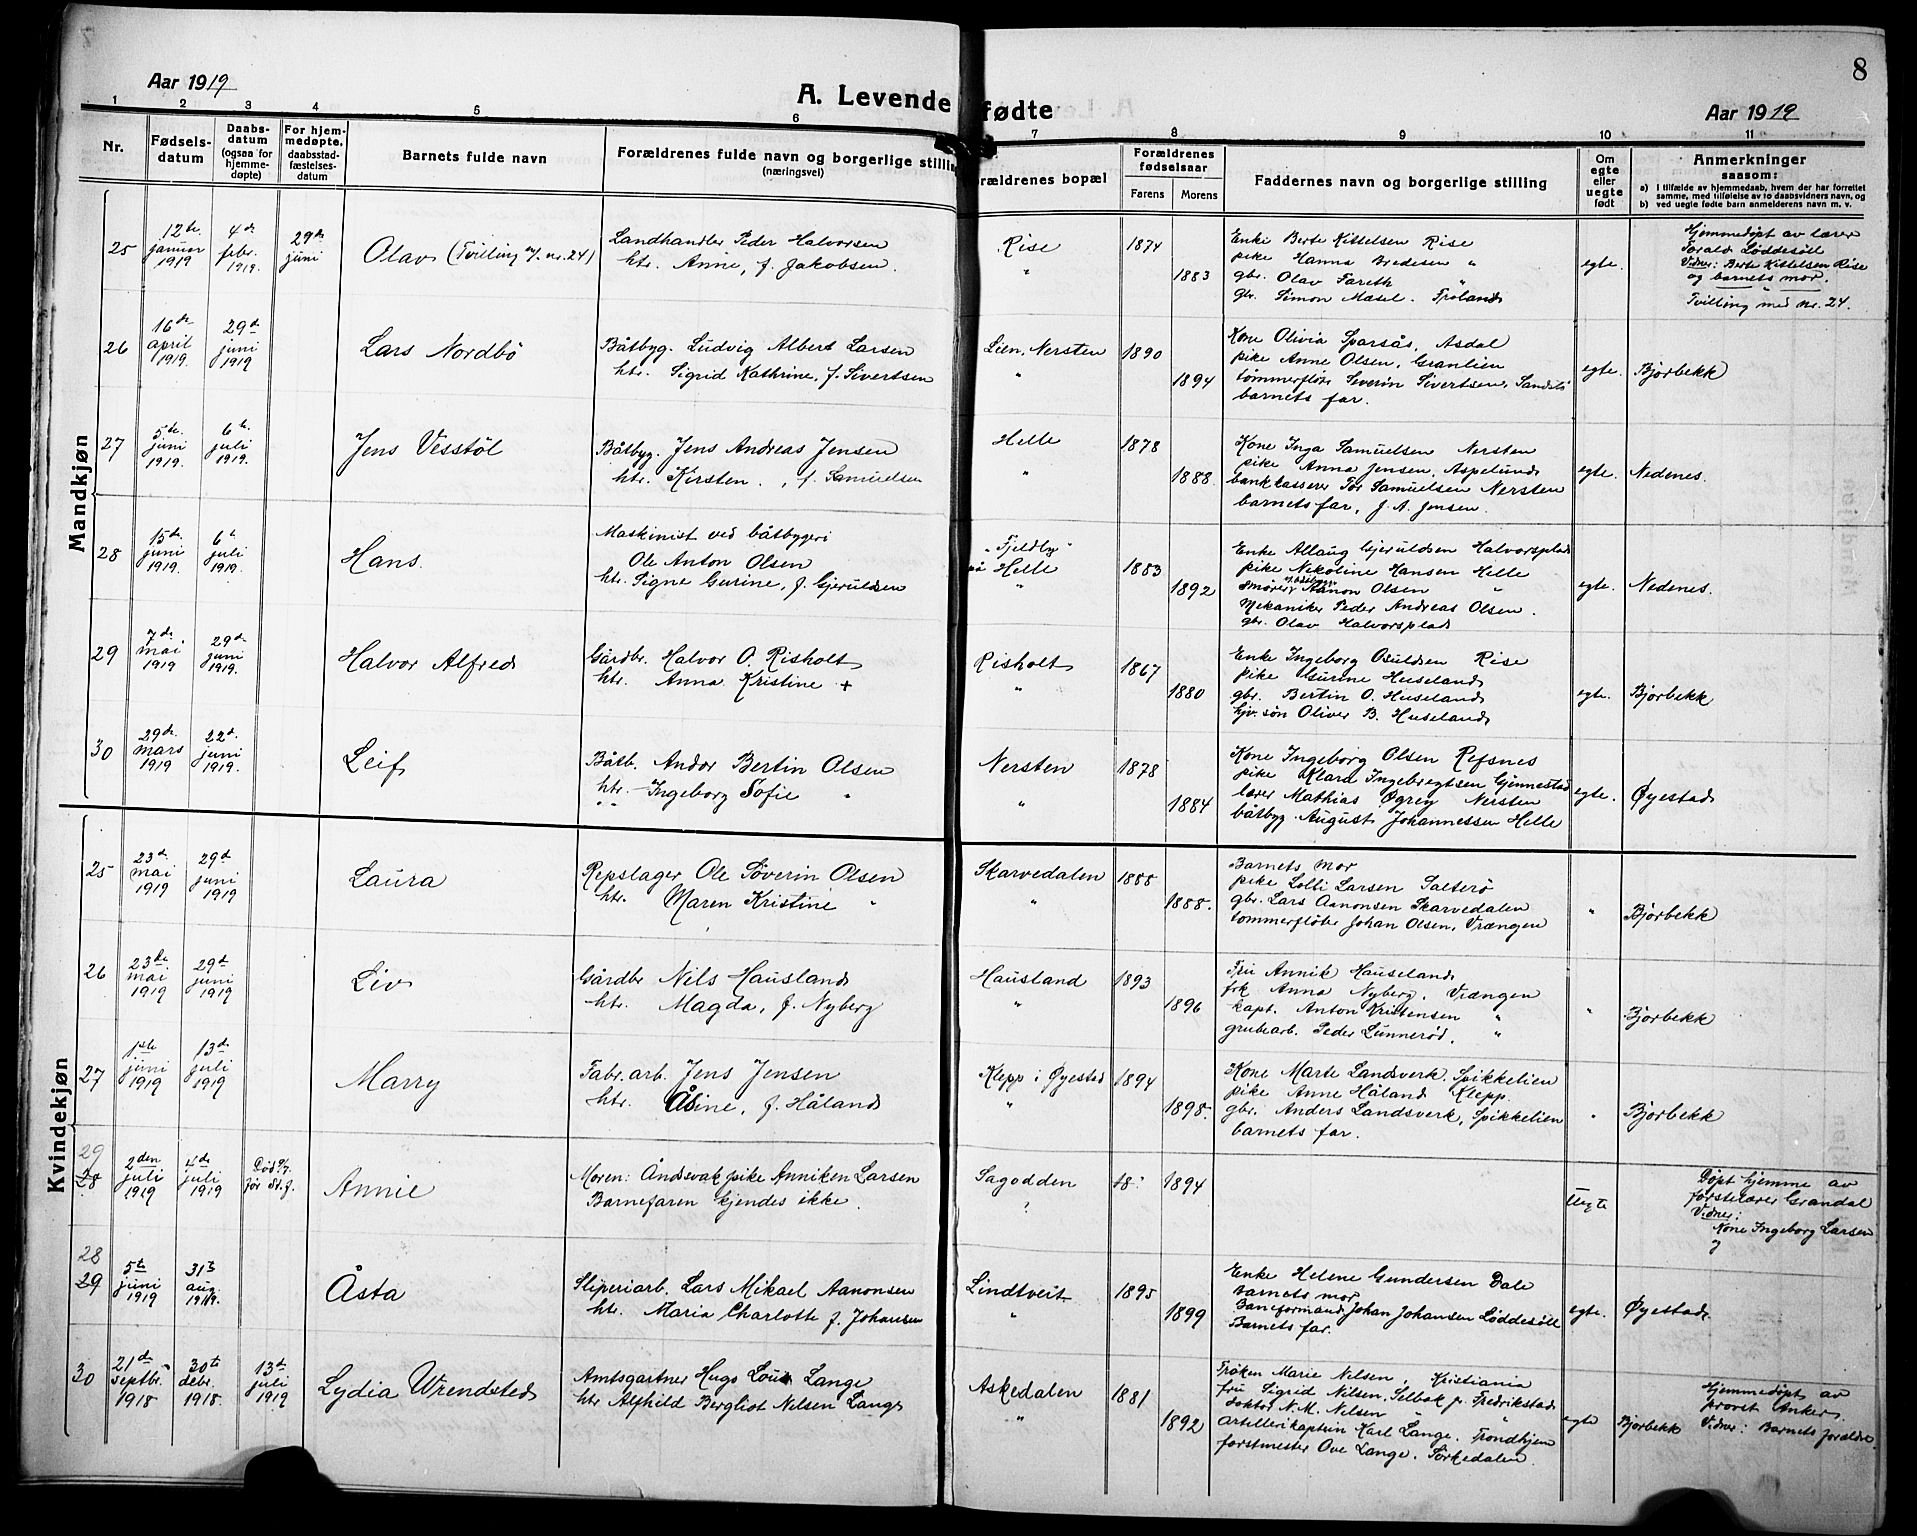 Aar 1919
A. Levende fødte
Aar 1919
8
1 2 3 4 5 6 7 8 9 10 11
Nr.
Fødsels-
datum
Daabs-
datum
(ogsaa for
hjemme-
døpte)
For hjem-
medøpte.
daabsstad-
fæstelses-
datum
Barnets fulde navn
Forældrenes fulde navn og borgerlige stilling
(næringsvei)
Forældrenes bopæl
Forældrenes
fødselsaar
Farens Morens
Faddernes navn og borgerlige stilling
Om
egte
eller
uegte
født
Anmerkninger
saasom:
a) I tilfælde av hjemmedaab, hvem der har forrettet
samme, med tilføielse av to daabsvidners navn, og
b) ved uegte fødte barn anmelderens navn m. v.
Mandkjøn
25
12te
januar
1919
4de
febr.
1919.
29de
juni
Olav (Tvilling m/ nr. 24)
Landhandler Peder Halvorsen
htr. Anne, f. Jakobsen.
Rise
"
1874
1883
Enke Berte Kittelsen Rise
pike Hanna Bredesen "
gbr. Olav Fareth "
gbr. Simon Masel. Froland
egte.
Hjemmedøpt av lærer
Torald Løddesøll
Vidner: Berte Kittelsen Rise
og barnets mor.
Tvilling med nr. 24.
26
16de
april
1919.
29de
juni
1919
Lars Nordbø
Båtbyg. Ludvig Albert Larsen
htr. Sigrid Kathrine, f. Sivertsen
Lien, Nersten
"
1890
1894
Kone Olivia Sparsås, Asdal
pike Anne Olsen, Granlien
tømmerfløter Severin Sivertsen,
barnets far.
egte.
Bjorbekk
27
5te
juni
1919.
6te
juli
1919.
Jens Vesstöl
Båtbyg. Jens Andreas Jensen
htr. Kirsten , f. Samuelsen
Helle
"
1878
1888.
Kone Inga Samuelsen Nersten
pike Anna Jensen, Aspelund
bankkasserer Tor Samuelsen Nersten
barnets far, J. A. Jensen.
egte.
Nedenes.
28
15de
juni
1919.
6te
juli
1919.
Hans.
Maskinist ved båtbyggeri
Ole Anton Olsen
htr. Signe Gurine, f. Gjeruldsen
"Fjeldly"
på Helle
"
1883
1892
Enke Allaug Gjeruldsen Halvorsplad
pike Nekoline Hansen Helle
smører Aanon Olsen "
Mekaniker Peder Andreas Olsen.
gbr. Olav Halvorsplad
egte.
Nedenes.
29
7de
mai
1919
29de
juni
1919.
Halvor Alfred
Gårdbr. Halvor O. Risholt
htr. Anna Kristine +
Risholt
"
1867
1880
Enke Ingeborg Osuldsen Rise
pike Gurine Huseland
gbr. Bertin O. Huseland
hjv. søn Oliver B. Huseland
egte.
Bjorbekk
30
29de
mars
1919
22de
juni
1919.
Leif
Båtb. Andor Bertin Olsen
htr. Ingeborg Sofie "
Nersten
"
1878
1884
Kone Ingeborg Olsen Refsnes
pike Klara Ingebregtsen Gjennestad
lærer Mathias Øgrey Nersten
båtbyg. August Johannessen Helle
egte.
Øyestad
Kvindekjøn
25
23de
mai
1919
29de
juni
1919
Laura
Repslager Ole Söverin Olsen
htr. Maren Kristine "
Skarvedalen
"
1888
1888.
Barnets mor
pike Lolli Larsen Saterö
gbr. Lars Aanonsen Skarvedalen
tømmerfløter Johan Olsen, Vrængen
"
Bjorbekk
26
23de
mai
1919
29de
juni
1919
Liv
Gårdbr Nils Hausland
htr. Magda, f. Nyberg
Hausland
"
1893
1896
Fru Annik Hauseland
frk Anna Nyberg, Vrængen
kapt. Anton Kristensen "
grubearb. Peder Lunnerød, "
"
Bjorbekk
27
1ste
juni
1919
13de
juli
1919
Marry
Fabr. arb. Jens Jensen
htr. Åsine, f. Håland
Klepp i Øyestad
"
1894
1898.
Kone Marte Landsverk, Spikkelien
pike Anne Håland Klepp.
gbr. Anders Landsverk, Spikkelien
barnets far.
"
Bjorbekk
29
28
2den
juli
1919
4de
juli
1919
Død 9/7.
før St. f.
Annie
Moren: Åndsvak pike Anniken Larsen
Barnefaren kjendes ikke.
Sagodden
?
18:
1894
Uegte
Døpt hjemme av
førstelærer Grandal
Vidner:
Kone Ingeborg Larsen
28
29
5te
juni
1919
31te
aug.
1919.
Åsta
Sliperiarb. Lars Mikael Aanonsen
htr. Maria Charlotte f. Johansen
Lindtveit
"
1895
1899
Enke Helene Gundersen Dale
Barnets mor
Baneformand Johan Johansen Løddesöll
Barnets far.
egte.
Øyestad.
30
21de
septbr.
1918
30te
debr.
1918.
13de
juli
1919
Lydia Wrendsted
Amtsgartner Hugo Louis Lange
htr Alfhild Bergliot Nilsen Lange
Askedalen
"
1881
1892
Frøken Marie Nilsen, Kristiania
fru Sigrid Nilsen, Selbak p. Fredrikstad
doktor N. M. Nilsen "
artillerikaptein Karl Lange. Trondhjem
forstmester Ove Lange, Sörkedalen.
egte
Bjorbekk
Hjemmedöpt av
provst Anker.
Vidner: Barnets forældre